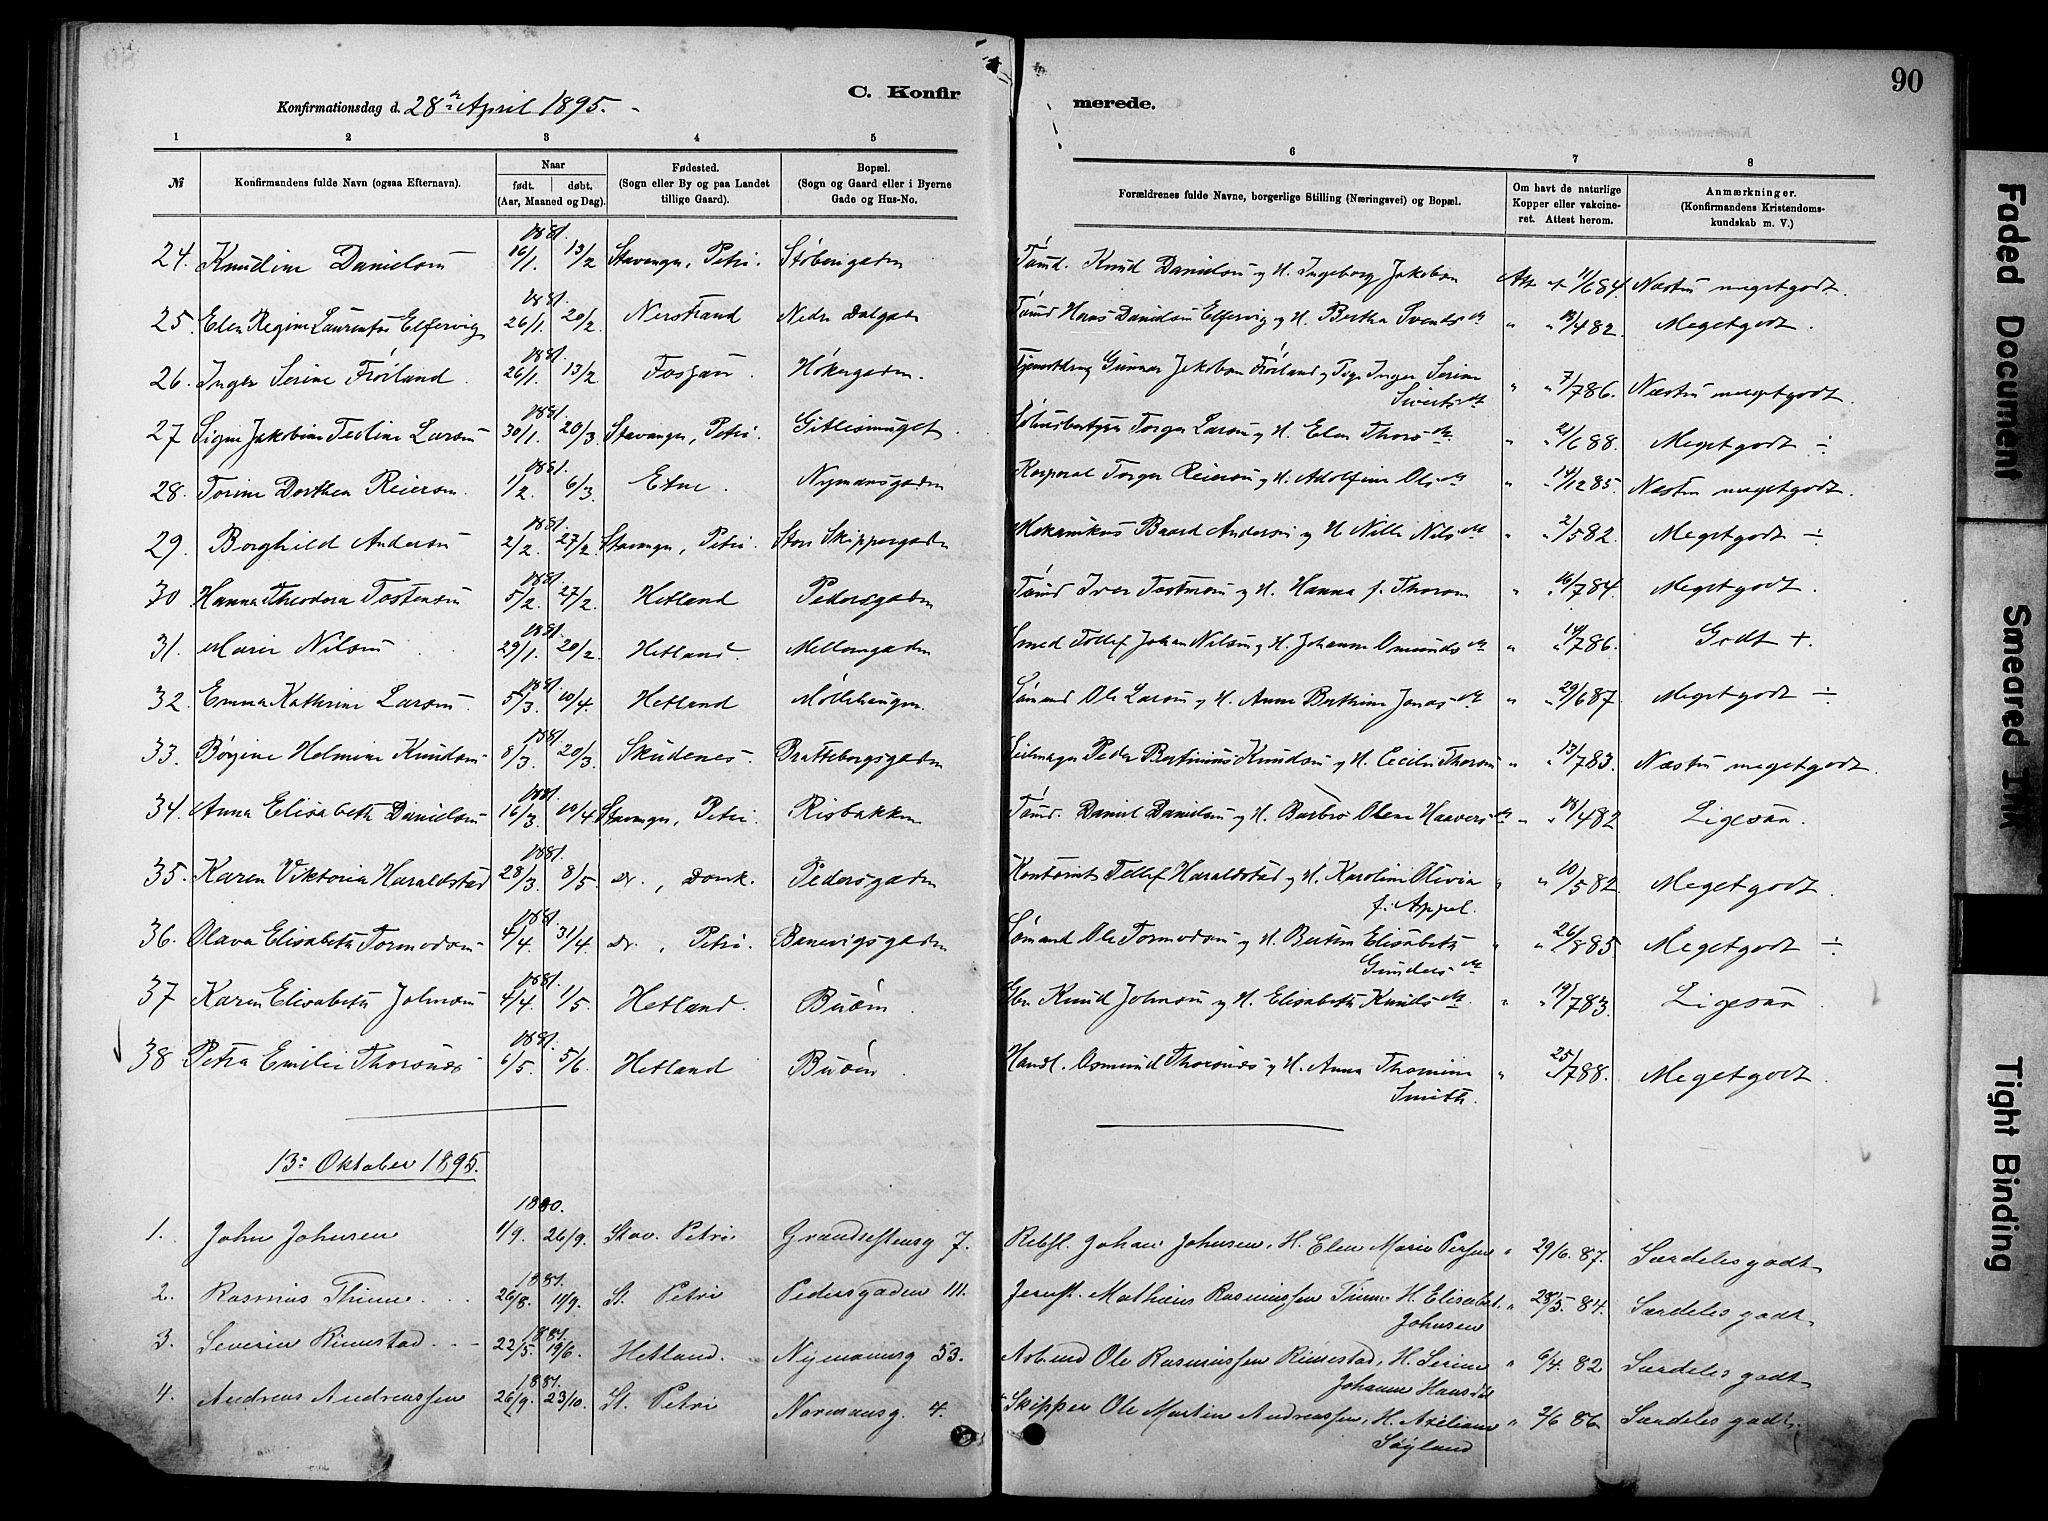 90
C. Konfirmerede.
Konfirmationsdag d. 28de April 1895.
1 2 3 4 5 6 7 8
№ Konfirmandens fulde Navn (ogsaa Efternavn). Naar født. døbt. (Aar, Maaned og Dag). Fødested. (Sogn eller By og paa Landet tillige Gaard). Bopæl. (Sogn og Gaard eller i Byerne Gade og Hus-No. Forældrenes fulde Navne, borgerlige Stilling (Næringsvei) og Bopæl. Om havt de naturlige Kopper eller vakcineret. Attest herom. Anmærkninger. (Konfirmandens Kristendomskundskab m. V.)
24. Knudine Danielsen 1881. 16/1. 13/2 Stavanger, Petri. Støberigaden Tømd. Knud Danielsen og H. Ingeborg Jakobsen Att. af 11/6 84. Næsten megetgodt.
25. Elen Regine Laurentse Elfervig 1881. 26/1. 20/2. Nerstrand Nedre Dalgade Tømd Hans Danielsen Elfervig og H. Bertha Svends dt " " 18/4 82. Megetgodt.
26. Inger Serine Frøiland. 1881. 26/1. 13/2 Fosgau. Høkergaden. Tjenestdreng Gunnar Jakobsen Frøiland og Pige Inger Serine " " 7/7 86. Næsten megetgodt.
Siverts dt
27 Signe Jakobine Teoline Larsen 1881. 30/1. 20/3. Stavanger, Petri. Gitlesmuget. Torger Larsen og H. Elen Thors dt. " " 21/6 88. Megetgodt ÷
28. Torine Dorthea Reiersen. 1881. 1/2. 6/3. Etne. Nymansgaden Korporal Torger Reiersen og H. Adolfine Ols dt " " 14/12 85. Næsten megetgodt.
29. Borghild Andersen 1881. 2/2. 27/2 Stavanger, Petri. Store Skippergaden Mekanikus Baard Andersen og H Nille Nils dt " " 2/5 82. Megetgodt ÷
30 Hanna Theodora Tostensen 1881. 5/2. 27/2. Hetland Pedersgaden Tømd Iver Tostensen og H. Hanna f. Thorsen " " 16/7 84. Megetgodt.
31. Marie Nilsen 1881. 29/1. 20/2. Hetland. Mellemgaden Smed Tollef Johan Nilsen og H. Johanne Omunds dt " " 14/7 86. Godt +.
32. Emma Kathrine Larsen. 1881. 5/3. 10/4. Hetland Møllehaugen. Sømand Ole Larsen og H. Anne Berthine Jonas dt " " 29/6 87. Megetgodt ÷
33. Børgine Helmine Knudsen 1881. 8/3. 20/3. Skudenes. Bratteborgsgaden Seilmager Peder Bertinius Knudsen og H. Cecilie Thorsen " " 13/7 83. Næsten megetgodt.
34. Anna Elisabeth Danielsen 1881. 16/3. 10/4 Stavanger, Petri. Risbakken Tømd. Daniel Danielsen og H. Barbro Olene Haavers dt " " 18/4 82 Ligesaa.
35. Karen Viktoria Haraldstad 1881. 28/3. 8/5. do., Domk. Pedersgaden Kontorist Tellef Haraldstad og H. Karoline Olivia " " 10/5 82. Megetgodt.
f. Appel.
36. Olava Elisabeth Tormodsen 1881. 4/4. 31/4. do., Petri. Banevigsgaden Sømand Ole Tormodsen og H. Elisabeth " " 26/8 85. Megetgodt ÷
Gunders dt
37 Karen Elisabeth Johnsen 1881. 4/4. 1/5. Hetland. Buøen. Knud Johnsen og H. Elisabeth Knuds dt. " " 19/7 83. Ligesaa.
38. Petra Emilie Thorsnes 1881. 6/5. 5/6. Hetland Buøen. Handl. Osmund Thorsnes og H. Anna Thomine " " 25/7 88. Megetgodt.
Smith.
13: Oktober 1895.
1. John Johnsen 1880. 1/9. 26/9. Stav. Petri Grandesteusg 7. Rebsl. Johan Johnsen, H. Elen Marie Persen " 29/6. 87. Særdeles godt
2. Rasmus Thime 1881. 26/8. 11/9. St. Petri Pedersgaden 111. Mathias Rasmussen Time H. Elisabet " 28/5. 84. Særdeles godt
Johnsen
3. Severin Rimestad 1881. 22/5. 19/6. Hetland. Nymannsg 53. Arb.md Ole Rasmussen Rimestad, H. Serine " 6/4. 82 Særdeles godt
Johanne Hansdt
4. Andreas Andreassen 1881. 26/9. 23/10. St. Petri Normansg. 4. Skipper Ole Martin Andreassen, H. Axeliane " 2/6 86. Særdeles godt.
Søyland
Faded Document
Smeared Ink
Tight Binding